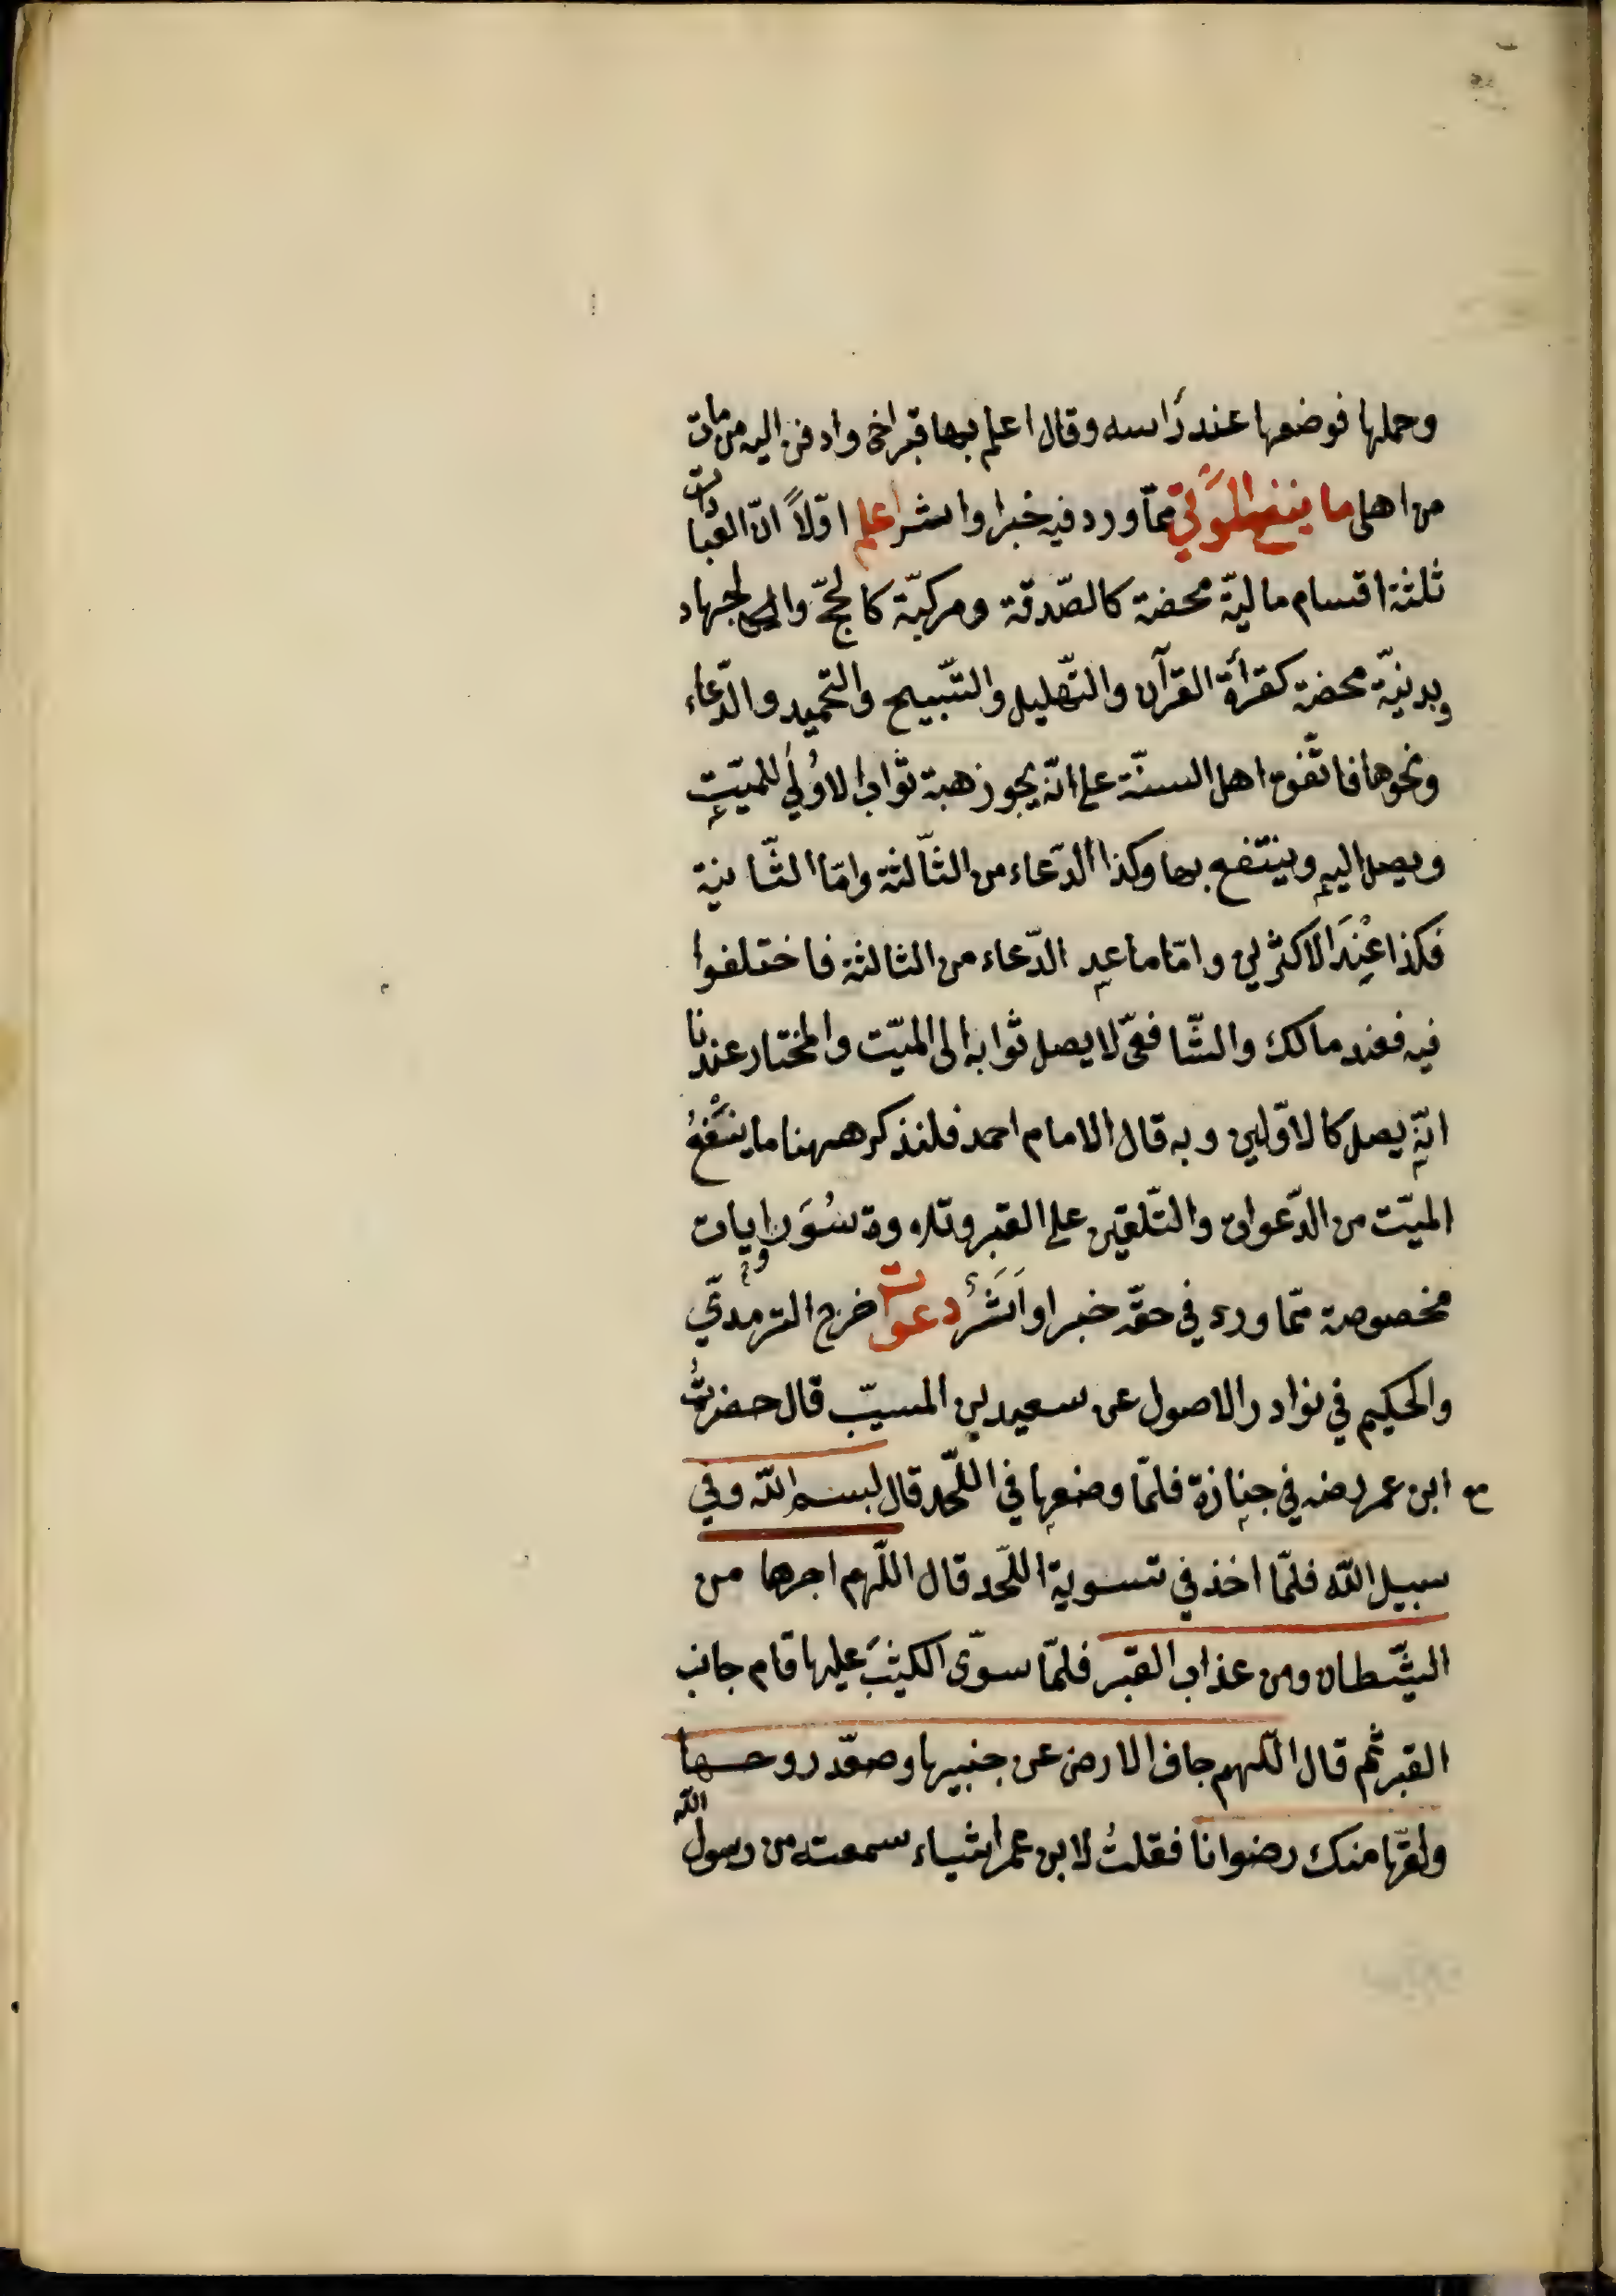 وحملها فوضعها عند رأسه وقال اعلم بها قبر اخى وادفن اليه من مات
من اهلى ما ينفع الموتى ممّا ورد فيه خبرا واشر اعلم اوّلاً انّ العبادات
ثلثة اقسام ماليّة محضة كالصّدقة ومركبّة كالحجّ والجهاد
وبدنيّة محضة كقرأة القرآن والتّهليل والتّسبيح والتحميد والدّعاء
ونحوها فاتّفق اهل السنّة على انّه يجوز هبة ثواب الاُولى للميّت
ويصل اليه وينتفع بها وكذا الدّعاء من الثّالثة وامّا الثّانية
فكذا عند الاكثرين وامّا ما عد الدّعاء من الثالثة فاختلفوا
فيه فعند مالك والشّافعىّ لا يصل ثوابه الى الميّت والمختار عندنا
انّه يصل كالاوّلين وبه قال الامام احمد فلنذكر ههنا ما ينفع
الميّت من الدّعوات والتّلقين على القبر وتلاوة سُوَر وايات
مخصوصة ممّا ورد في حقّه خبر او اَثَر دعوات اخرج الترمذيّ
والحكيم في نوادر الاصول عن سعيد بن المسيّب قال حضرتُ
مع ابن عمر رضه في جنازة فلمّا وضعها في اللّحد قال بسم الله وفي
سبيل الله فلمّا اخذ في تسوية اللّحد قال اللّهم اجرها من
الشّيطان ومن عذاب القبر فلمّا سوّى الكثيبَ عليها قام جانب
القبر ثم قال اللّهم جاف الارض عن جنبيها وصعّد روحها
ولقّها منك رضوانا فقلتُ لابن عمر اشياء سمعته من رسول الله